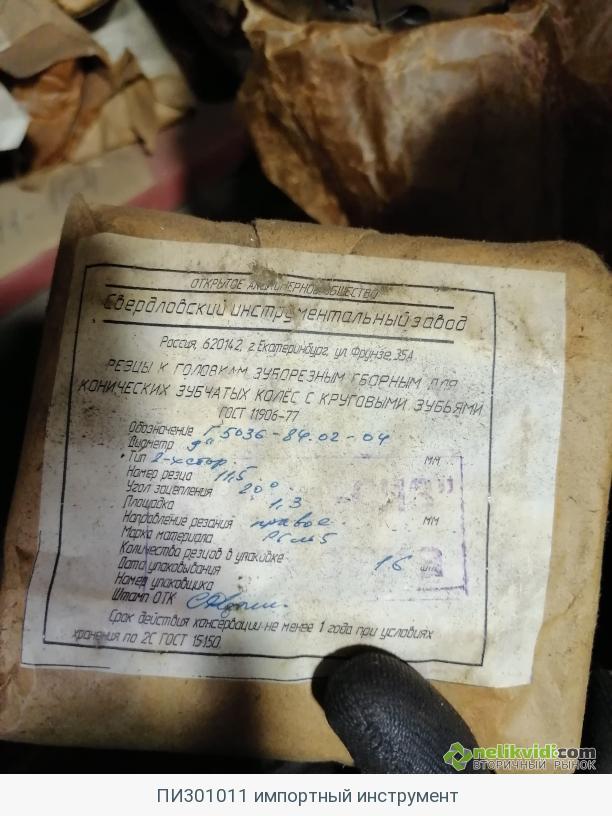 ОТКРЫТОЕ АКЦИОНЕРНОЕ ОБЩЕСТВО
Свердловский инструментальный завод
Россия, 620142, г. Екатеринбург, ул. Фрунзе, 35А
РЕЗЦЫ К ГОЛОВКАМ ЗУБОРЕЗНЫМ СБОРНЫМ ДЛЯ
КОНИЧЕСКИХ ЗУБЧАТЫХ КОЛЕС С КРУГОВЫМИ ЗУБЬЯМИ
ГОСТ 11906-77
Обозначение Г5036-84.02-04
Диаметр 9" мм
Тип 2-хстор.
Номер резца 11,5
Угол зацепления 20°
Площадка 1,3 мм
Направление резания правое
Марка материала Р6М5
Количество резцов в упаковке 16 шт.
Дата упаковывания
Номер упаковщика
Штамп ОТК
Срок действия консервации не менее 1 года при условиях
хранения по 2С ГОСТ 15150.
nelikvidi.com
ВТОРИЧНЫЙ РЫНОК
ПИ301011 импортный инструмент